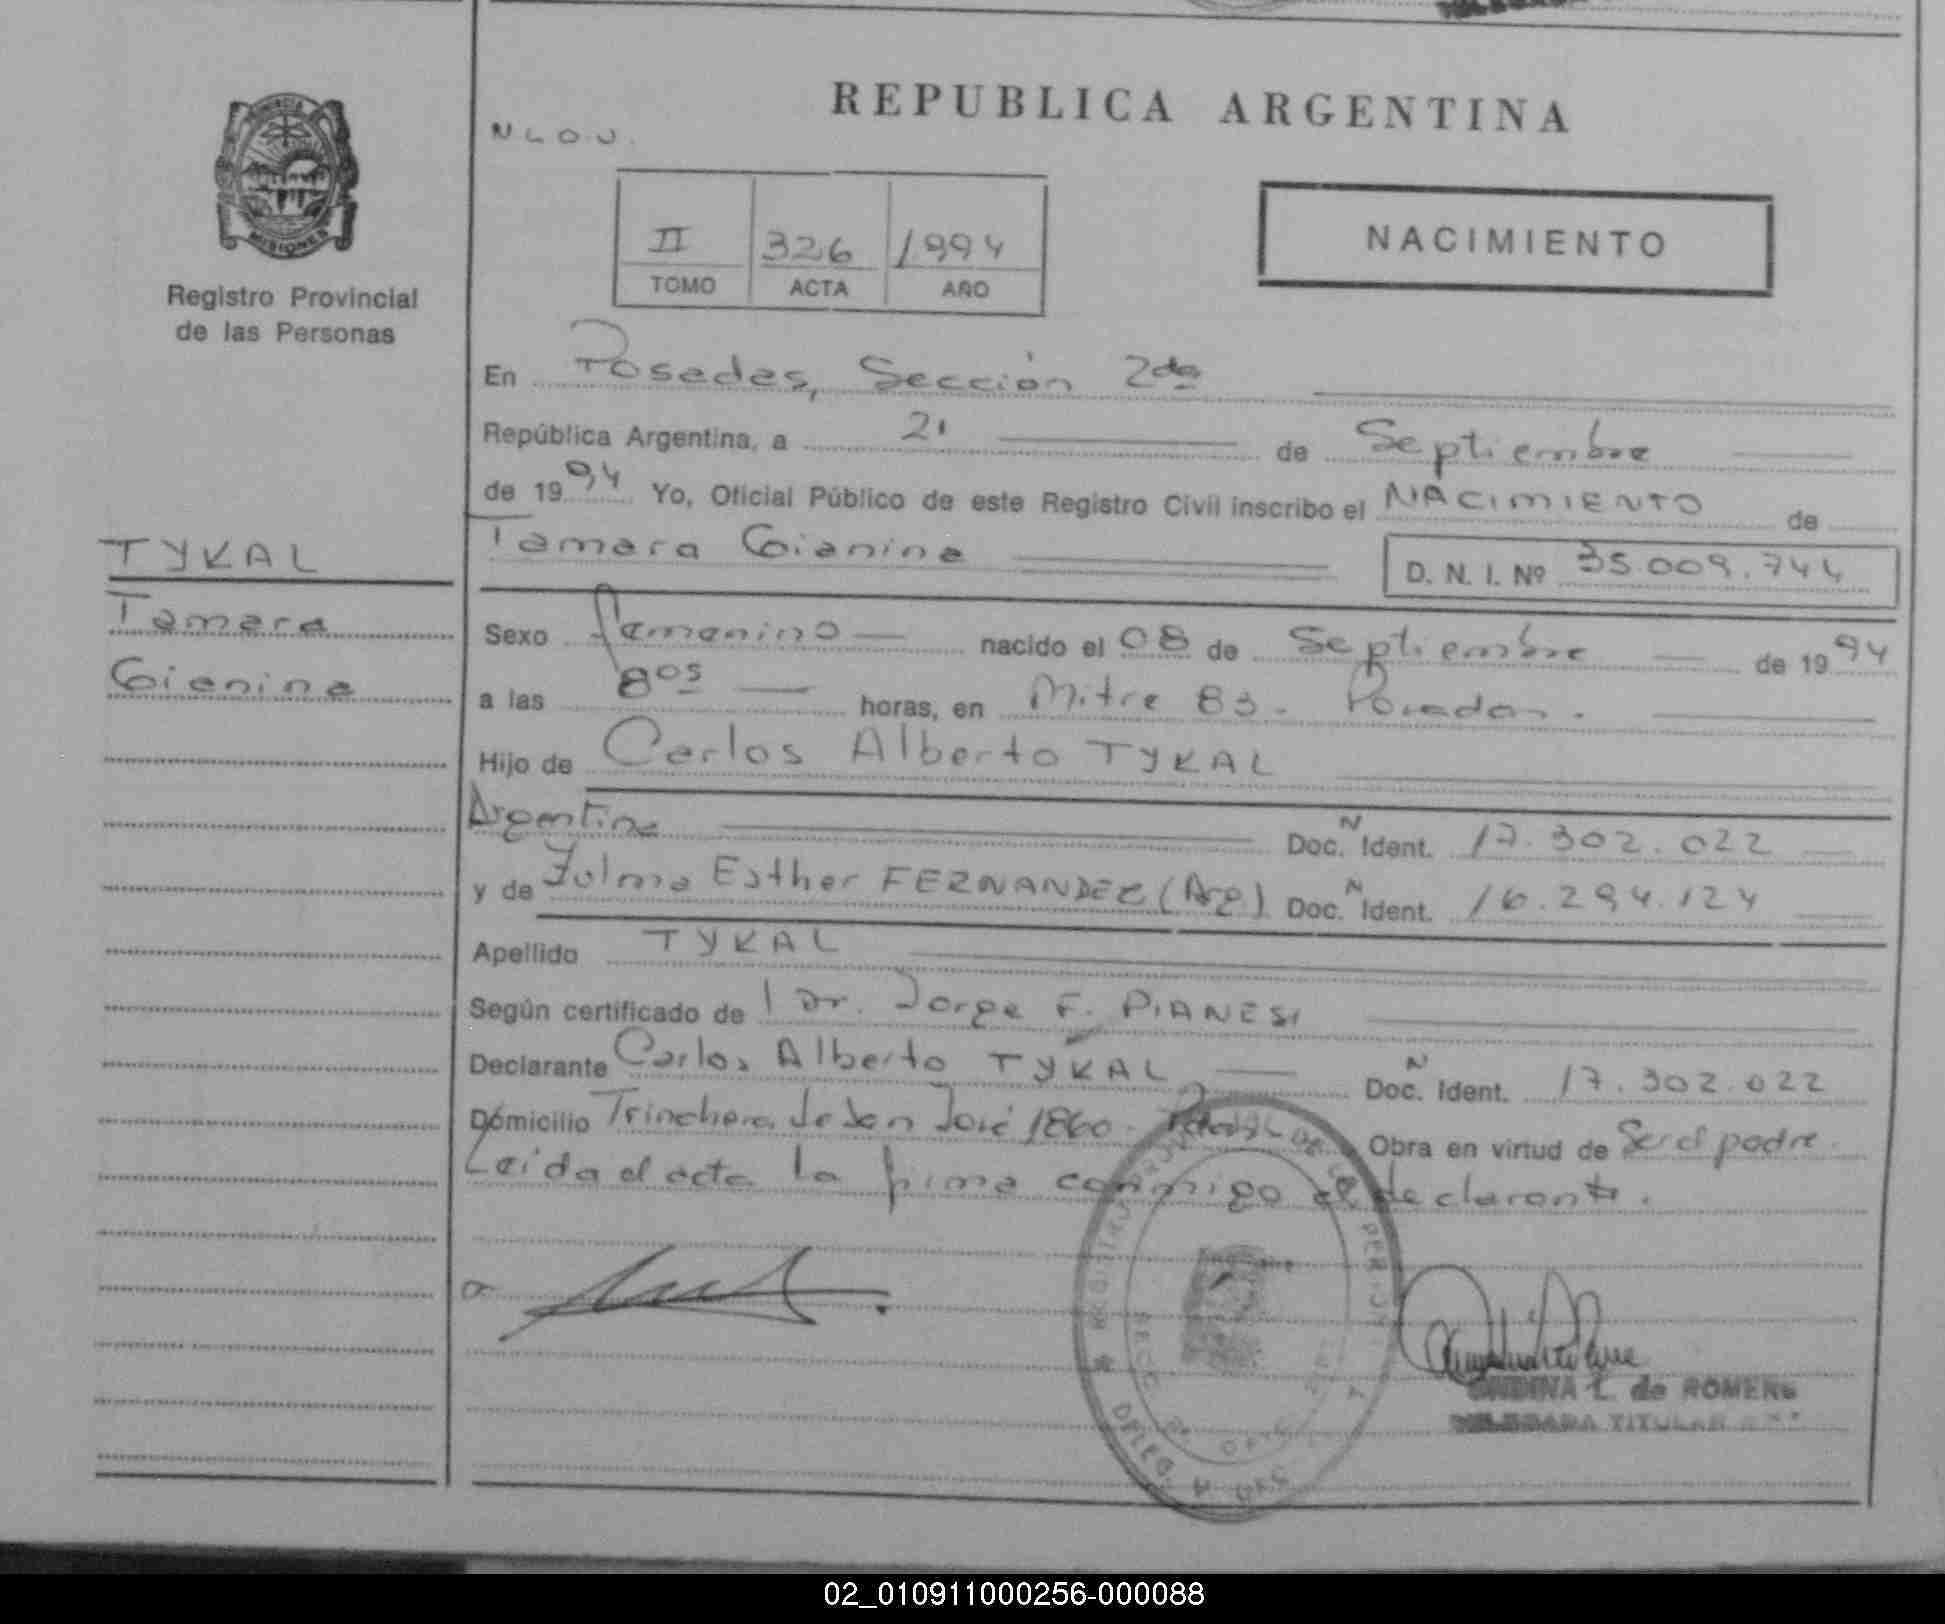 REPUBLICA ARGENTINA
N L O U.
II 326 1994
TOMO ACTA AÑO
NACIMIENTO
MISIONES
Registro Provincial
de las Personas
TYKAL
Tamara
Gianina
En Posadas, Sección 2da
República Argentina, a 21 de Septiembre
de 1994 Yo, Oficial Público de este Registro Civil inscribo el NACIMIENTO de
Tamara Gianina D. N. I. Nº 35.009.744
Sexo femenino nacido el 08 de Septiembre de 1994
a las 8os horas, en Mitre 83. Posadas.
Hijo de Carlos Alberto TYKAL
Argentino Doc. N Ident. 17.302.022
y de Zulma Esther FERNANDEZ (Arg) Doc. N Ident. 16.294.124
Apellido TYKAL
Según certificado de l Dr. Jorge F. PIANESI
Declarante Carlos Alberto TYKAL Doc. N Ident. 17.302.022
Domicilio Trinchera de San José 1860. Obra en virtud de Ser el padre.
Leída el acta la firma conmigo el declarante.
ONDINA L. de ROMERO
DELEGADA TITULAR
02_010911000256-000088